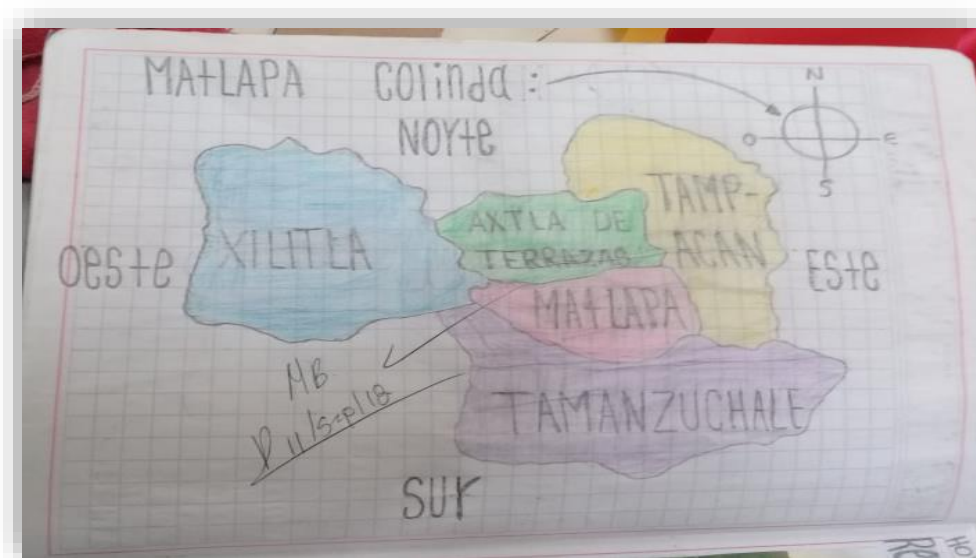 MAtLAPA Colinda :
NORte
N
O E
S
Oeste
XILITLA
AXTLA DE
TERRAZAS
TAMP-
ACAN
EStE
MAtLAPA
TAMANZUCHALE
MB
11/Sep/18
SUR